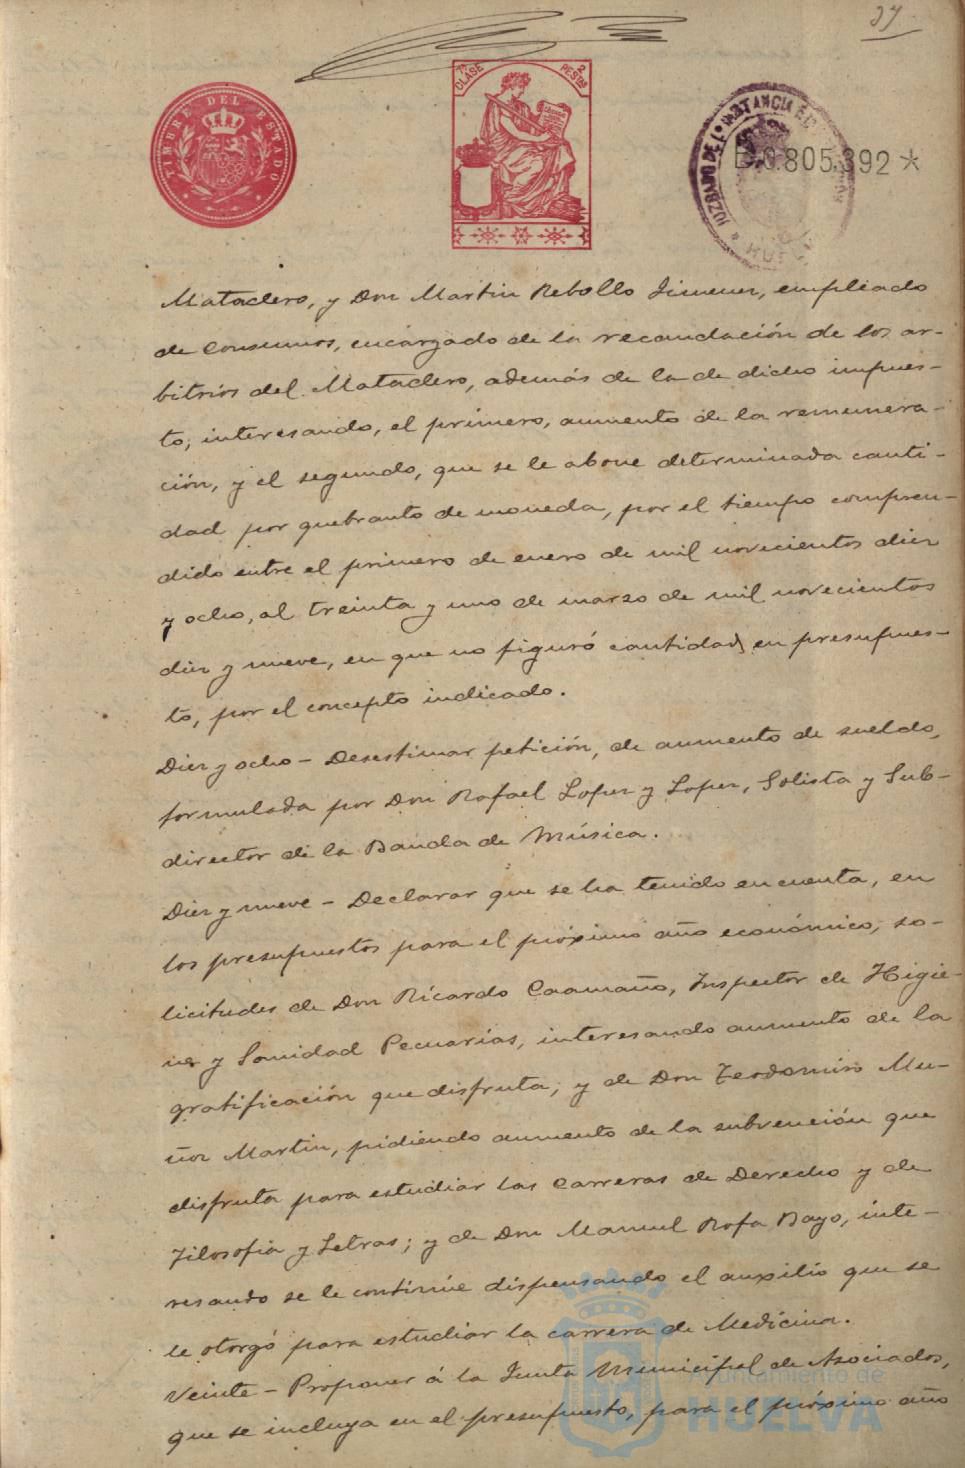 37
TIMBRE DEL ESTADO
7ª CLASE 2 PESTAS
JUZGADO DE 1ª INSTANCIA E
HUELVA
B.0.805.392*
Matadero, y Don Martin Rebollo Jimenez, empleado
de Consumos, encargado de la recaudación de los ar-
bitrios del Matadero, además de la de dicho impues-
to; interesando, el primero, aumento de la remunera-
ción, y el segundo, que se le abone determinada canti-
dad por quebranto de moneda, por el tiempo compren-
dido entre el primero de enero de mil novecientos diez
y ocho, al treinta y uno de marzo de mil novecientos
diez y nueve, en que no figuró cantidad, en presupues-
to, por el concepto indicado.
Diez y ocho - Desestimar petición, de aumento de sueldo,
formulada por Don Rafael Lopez y Lopez, Solista y Sub-
director de la Banda de Música.
Diez y nueve - Declarar que se ha tenido en cuenta, en
los presupuestos para el próximo año económico, so-
licitudes de Don Ricardo Caamaño, Inspector de Higie-
ne y Sanidad Pecuarias, interesando aumento de la
gratificación que disfruta; y de Don Teodomiro Mu-
ñoz Martin, pidiendo aumento de la subvención que
disfruta para estudiar las Carreras de Derecho y de
Filosofia y Letras; y de Don Manuel Rofa Bayo, inte-
resando se le continúe dispensando el auxilio que se
le otorgó para estudiar la carrera de Medicina.
Veinte - Proponer á la Junta Municipal de Asociados,
que se incluya en el presupuesto, para el próximo año
Ayuntamiento de
HUELVA